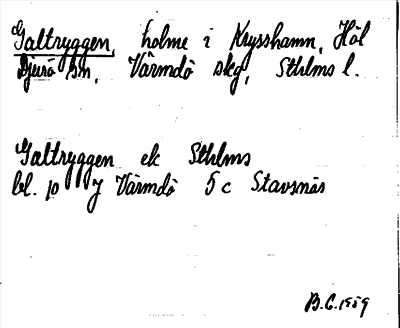 Galtryggen, holme i Krysshamn, Hål
Djurö sn, Värmdö skg, Sthlms l.
Galtryggen ek Sthlms
bl. 10 J Värmdö 5 c Stavsnäs
B.C. 1959